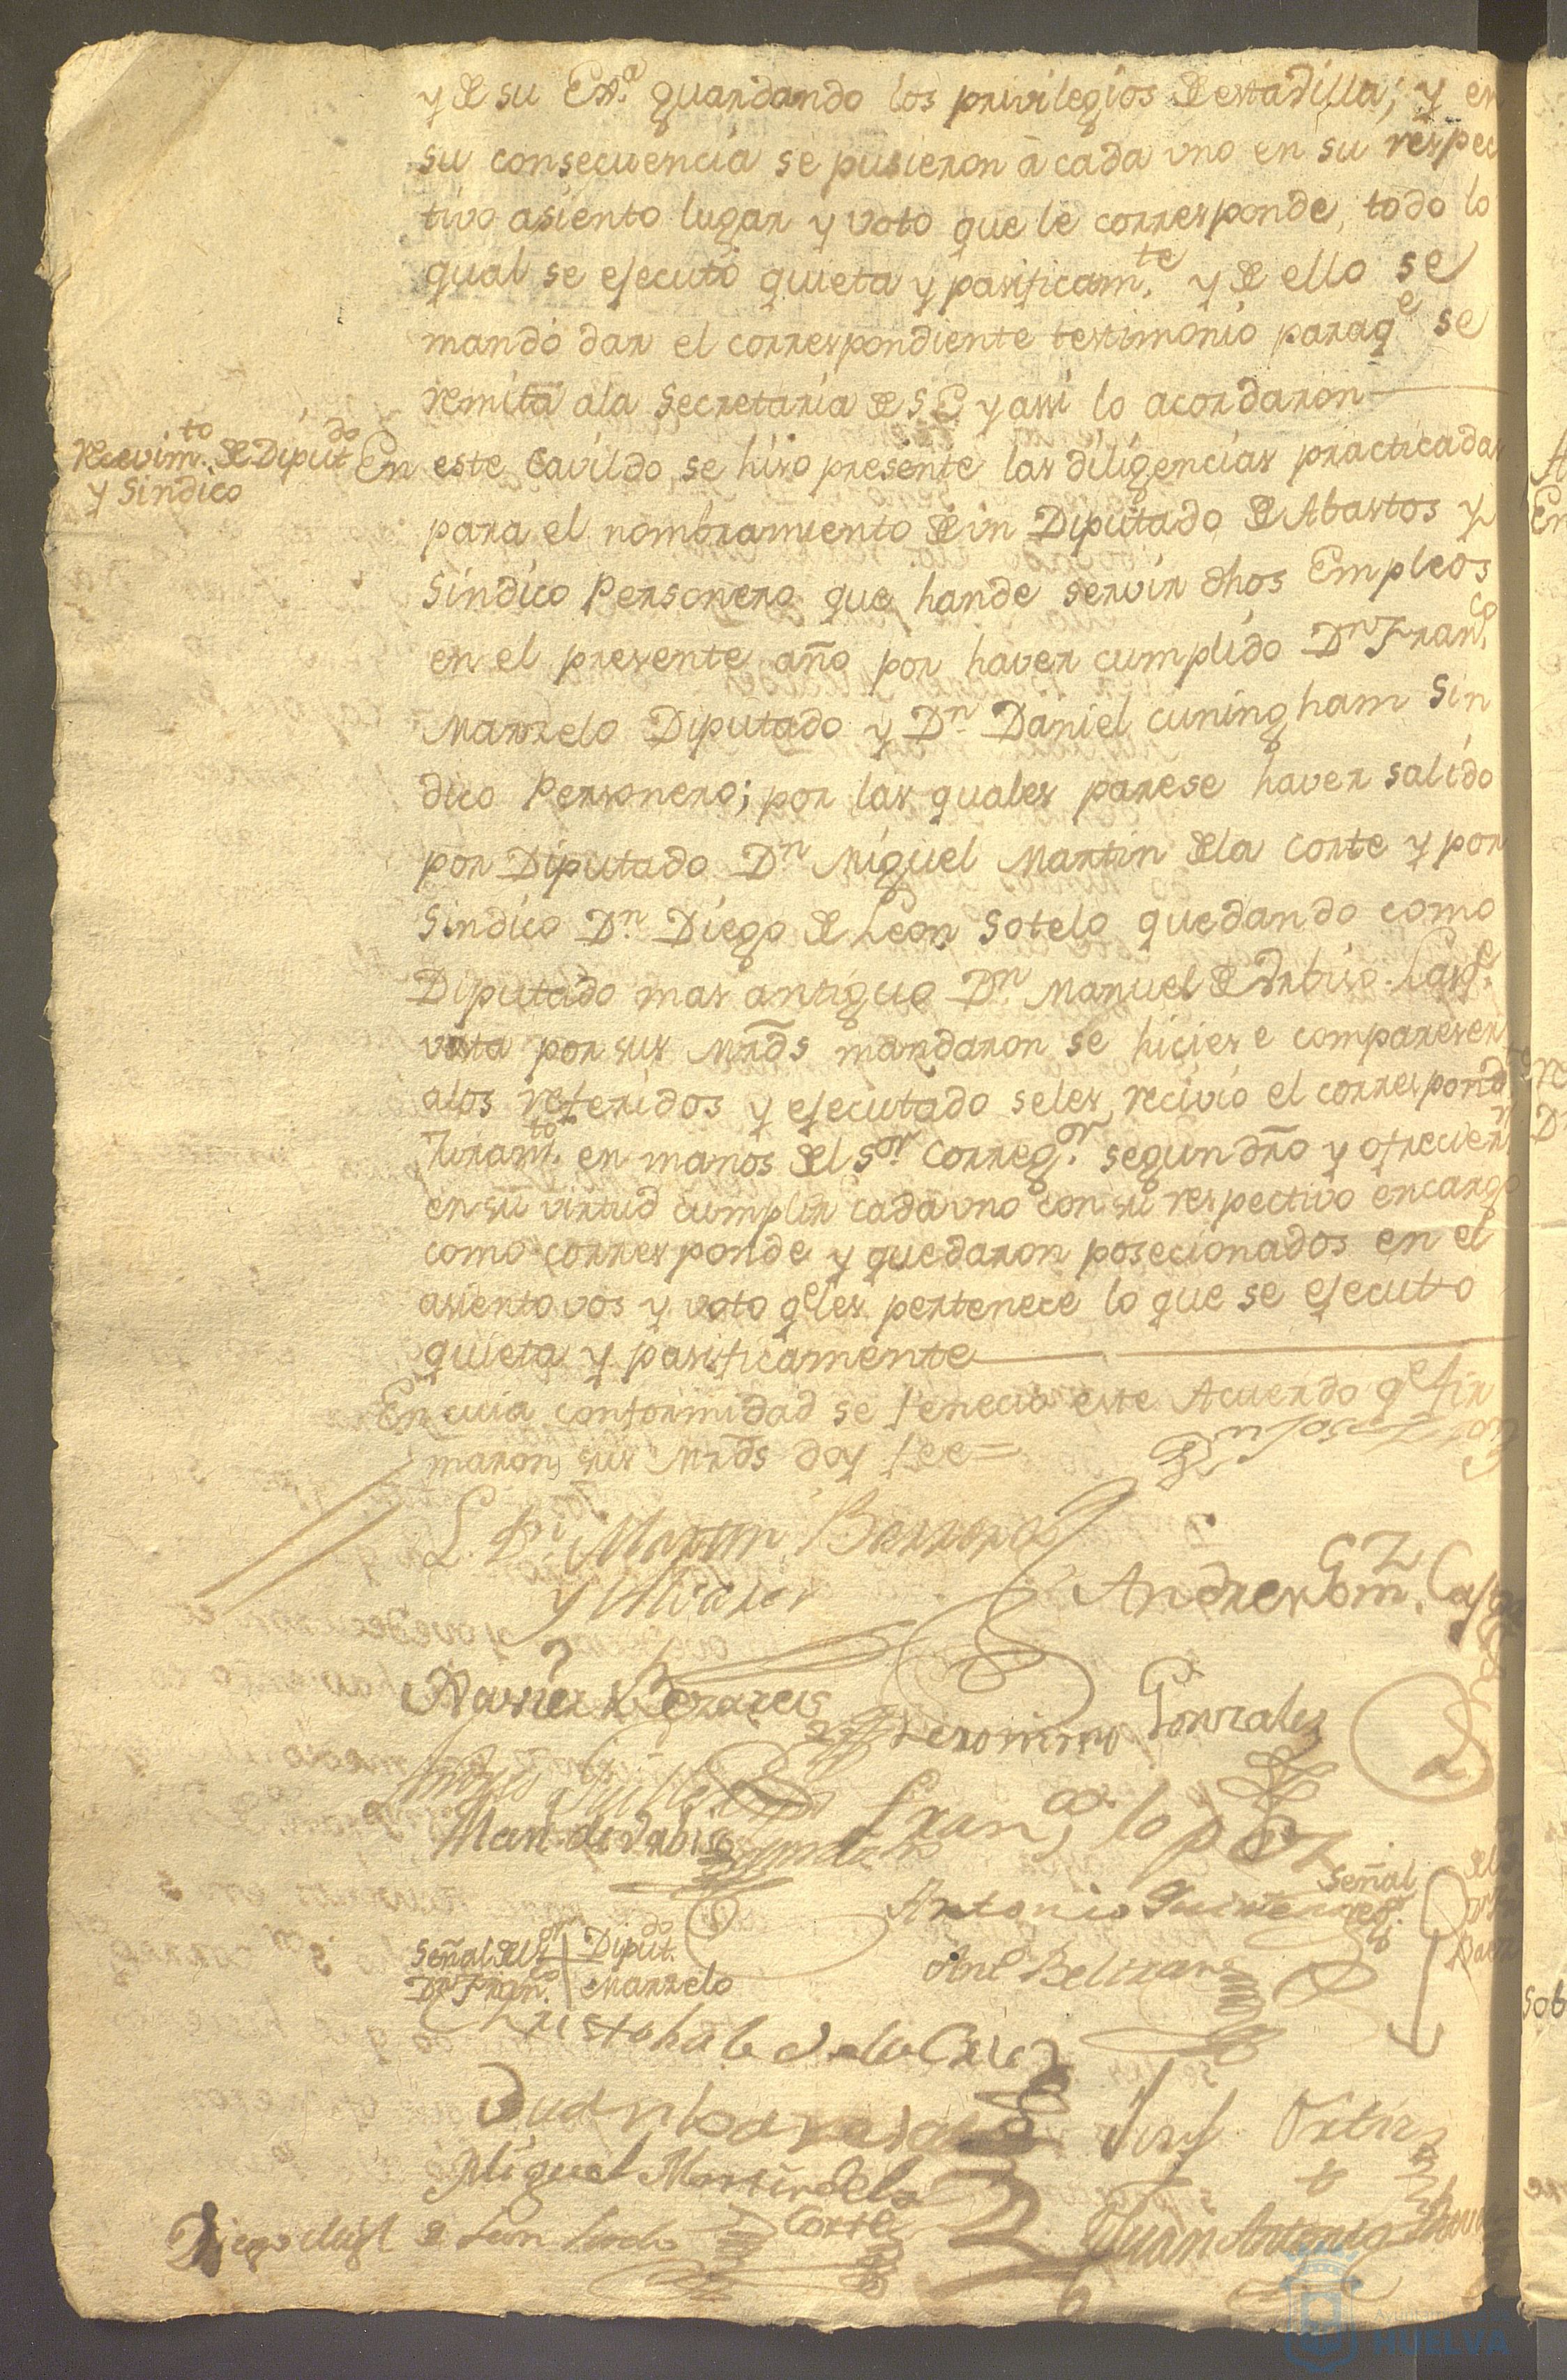 y de su Exª guardando los privilegios de esta Villa; y en
su consecuencia se pusieron a cada uno en su respec
tivo asiento lugar y voto que le corresponde, todo lo
qual se ejecutó quieta y pasificam.te y de ello se
mandó dar el correspondiente testimonio paraq.e se
remita ala Secretaria de S E y assi lo acordaron
Recevim.to de Diput.do
y Sindico
En este Cavildo se hiso presente las diligencias practicadas
para el nombramiento de un Diputado de Abastos y
Sindico Personero que hande servir dhos Empleos
en el presente año por haver cumplido Dn Fran.co
Marrelo Diputado y Dn Daniel cuningham Sin
dico Personero; por las quales parese haver salido
por Diputado Dn Miguel Martin dela Corte y por
Sindico Dn Diego de Leon Sotelo quedando como
Diputado mas antiguo Dn Manuel de
vista por sus Mrds mandaron se hiciese compareser
alos referidos y ejecutado seles recivio el correspond.te
Juram.to en manos del S.or Correg.or segun dro y ofrecier.n
en su virtud cumplir cada uno con su respectivo encargo
como corresponde y quedaron posecionados en el
asiento vos y voto q.e les pertenece lo que se ejecuto
quieta y pasificamente
En cuia conformidad se fenecio este Acuerdo q.e fir
maron sus Mrds doy fee=
L. Dn Martin Barrera
y
Andres Gom.z
Geronimo Gonzales
Man. de
Fran.co lopez
Antonio Quintero
Señal
Señal del S.or Diput.do
Dn Fran.co Marrelo
Ant. Beltran
Christobal de la Cruz
Juan
Josef Ortiz
Miguel Martin dela
Corte
Diego de Leon Sotelo
Juan Antonio
HUELVA